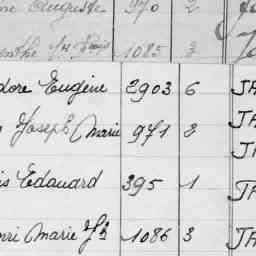 Auguste 970 2
1085 3
dore Eugène 2903 6 JA
Joseph Marie 971 2 JA
JA
is Edouard 395 1 JA
nri Marie Jh 1086 3 JA